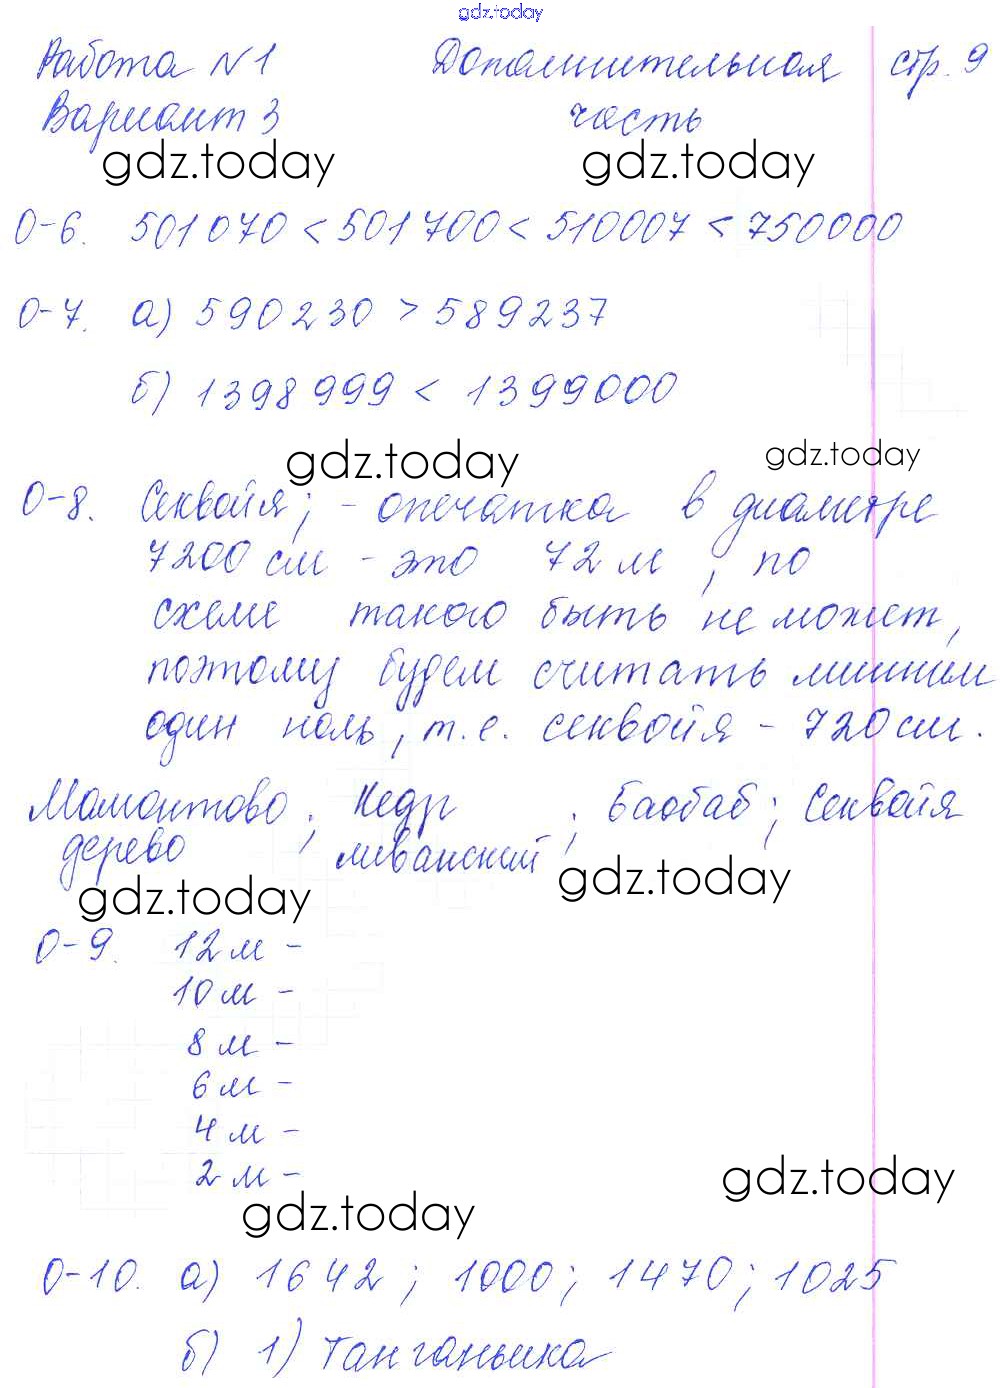 gdz.today
Работа №1 Дополнительная стр. 9
Вариант 3 часть
gdz.today gdz.today
О-6. 501070 < 501700 < 510007 < 750000
О-7. а) 590230 > 589237
б) 1398999 < 1399000
gdz.today gdz.today
О-8. Секвойя; - опечатка в диаметре
7200 см - это 72 м, по
схеме такого быть не может,
поэтому будем считать лишним
один ноль, т.е. секвойя - 720 см.
Мамонтово ; Кедр ; Баобаб; Секвойя
дерево ливанский
gdz.today gdz.today
О-9. 12 м -
10 м -
8 м -
6 м -
4 м -
2 м -
gdz.today gdz.today
О-10. а) 1642 ; 1000; 1470; 1025
б) 1) Танганьика